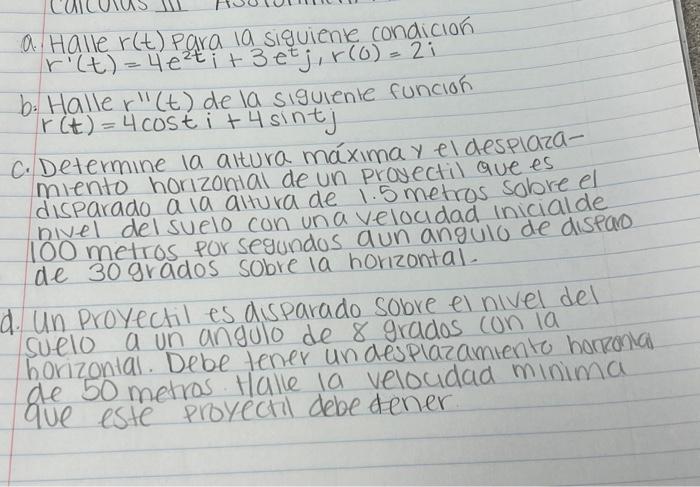 Calculus III
a. Halle r(t) para la siguiente condición
r'(t) = 4e^{2t} i + 3e^{t} j, r(0) = 2i
b. Halle r''(t) de la siguiente función
r(t) = 4 cost i + 4 sint j
c. Determine la altura máxima y el desplaza-
miento horizontal de un proyectil que es
disparado a la altura de 1.5 metros sobre el
nivel del suelo con una velocidad inicial de
100 metros por segundos a un angulo de disparo
de 30 grados sobre la horizontal.
d. Un proyectil es disparado sobre el nivel del
suelo a un angulo de 8 grados con la
horizontal. Debe tener un desplazamiento horizontal
de 50 metros. Halle la velocidad minima
que este proyectil debe tener.